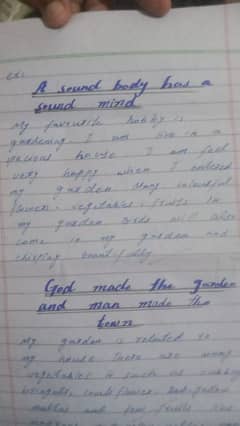 A sound body has a
sound mind
My favourite hobby is
gardening. I am live in a
house I am feel
very happy when I entered
my garden. Many colourful
flowers, vegetables, fruits in
my garden. Birds will also
come in my garden and
chirping beautifully.
God made the garden
and man made the
town
My garden is related to
my house There are many
vegetables is such as
cauliflower,
and